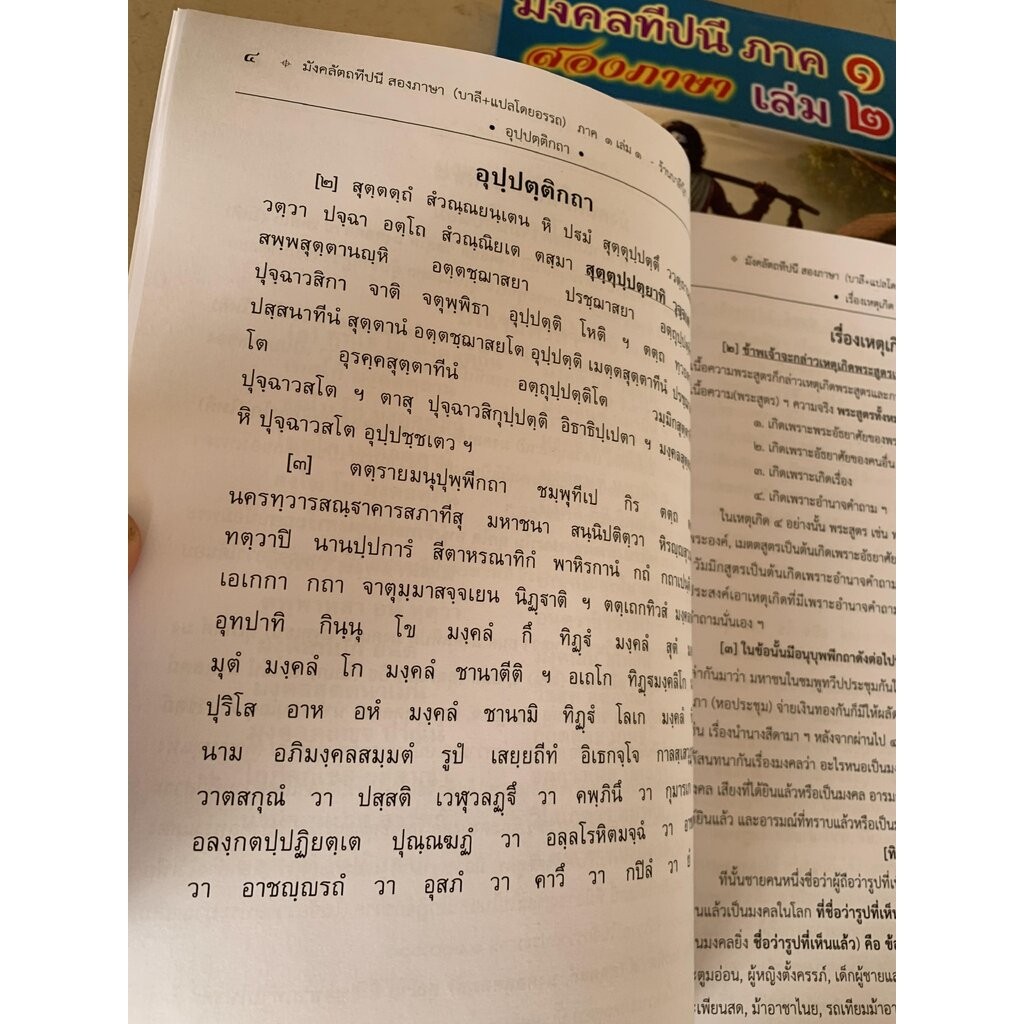 มงคลทีปนี ภาค ๑
สองภาษา เล่ม ๒
๔ มังคลัตถทีปนี สองภาษา (บาลี+แปลโดยอรรถ) ภาค ๑ เล่ม ๑ -
• อุปฺปตฺติกถา •
อุปฺปตฺติกถา
[๒] สุตฺตตฺถํ สํวณฺณยนฺเตน หิ ปฐมํ สุตฺตุปฺปตฺตึ
วตฺวา ปจฺฉา อตฺโถ สํวณฺณิยเต ตสฺมา สุตฺตุปฺปตฺยาทิ
สพฺพสุตฺตานญฺหิ อตฺตชฺฌาสยา ปรชฺฌาสยา
ปุจฺฉาวสิกา จาติ จตุพฺพิธา อุปฺปตฺติ โหติ ฯ ตตฺถ
ปสฺสนาทีนํ สุตฺตานํ อตฺตชฺฌาสยโต อุปฺปตฺติ เมตฺตสุตฺตาทีนํ
โต อุรคฺคสุตฺตาทีนํ อตฺถุปฺปตฺติโต
ปุจฺฉาวสโต ฯ ตาสุ ปุจฺฉาวสิกุปฺปตฺติ อิธาธิปฺเปตา ฯ
หิ ปุจฺฉาวสโต อุปฺปชฺชเตว ฯ
[๓] ตตฺรายมนุปุพฺพีกถา ชมฺพุทีเป กิร ตตฺถ
นครทฺวารสณฺฐาคารสภาทีสุ มหาชนา สนฺนิปติตฺวา
ทตฺวาปิ นานปฺปการํ สีตาหรณาทิกํ พาหิรกานํ กถํ
เอเกกา กถา จาตุมฺมาสจฺจเยน นิฏฺฐาติ ฯ ตตฺเถกทิวสํ
อุทปาทิ กินฺนุ โข มงฺคลํ กึ ทิฏฺฐํ มงฺคลํ สุตํ
มุตํ มงฺคลํ โก มงฺคลํ ชานาตีติ ฯ อเถโก ทิฏฺฐมงฺคลิโก
ปุริโส อาห อหํ มงฺคลํ ชานามิ ทิฏฺฐํ โลเก มงฺคลํ
นาม อภิมงฺคลสมฺมตํ รูปํ เสยฺยถีทํ อิเธกจฺโจ
วาตสกุณํ วา ปสฺสติ เวฬุวลฏฺฐึ วา คพฺภินึ วา
อลงฺกตปฺปฏิยตฺเต ปุณฺณฆฏํ วา อลฺลโรหิตมจฺฉํ วา
วา อาชญฺญรถํ วา อุสภํ วา คาวึ วา กปิลํ วา
๑ มังคลัตถทีปนี สองภาษา
• เรื่องเหตุเกิด
[๒] ข้าพเจ้าจะกล่าวเหตุเกิดพระสูตร
เนื้อความพระสูตรก็กล่าวเหตุเกิดพระสูตร
เนื้อความ(พระสูตร) ฯ ความจริง
๑. เกิดเพราะพระอัธยาศัยของ
๒. เกิดเพราะอัธยาศัยของคนอื่น
๓. เกิดเพราะเกิดเรื่อง
๔. เกิดเพราะอำนาจคำถาม ฯ
ในเหตุเกิด ๔ อย่างนั้น พระสูตร เช่น
เมตตสูตรเป็นต้นเกิดเพราะอัธยาศัย
เกิดเพราะอำนาจคำถาม
ประสงค์เอาเหตุเกิดที่มีเพราะอำนาจคำถาม
คำถามนั่นเอง ฯ
[๓] ในข้อนั้นมีอนุบุพพีกถาดังต่อไป
มหาชนในชมพูทวีปประชุมกัน
(หอประชุม) จ่ายเงินทองกันก็มีให้
เรื่องนำนางสีดามา ฯ หลังจากผ่านไป ๔
สนทนากันเรื่องมงคลว่า อะไรหนอเป็น
เสียงที่ได้ยินแล้วหรือเป็นมงคล
และอารมณ์ที่ทราบแล้วหรือเป็น
ทีนั้นชายคนหนึ่งชื่อว่าผู้ถือว่ารูปที่
แล้วเป็นมงคลในโลก ที่ชื่อว่ารูปที่เห็น
ชื่อว่ารูปที่เห็นแล้ว) คือ
ผู้หญิงตั้งครรภ์, เด็กผู้ชาย
ม้าอาชาไนย, รถเทียมม้า